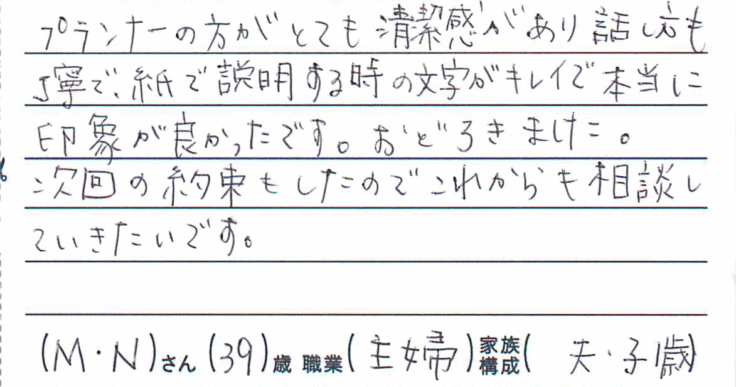 プランナーの方がとても清潔感があり話し方も
丁寧で、紙で説明する時の文字がキレイで本当に
印象が良かったです。おどろきました。
次回の約束もしたのでこれからも相談し
ていきたいです。
(M・N)さん(39)歳 職業(主婦)家族構成( 夫・子1歳)